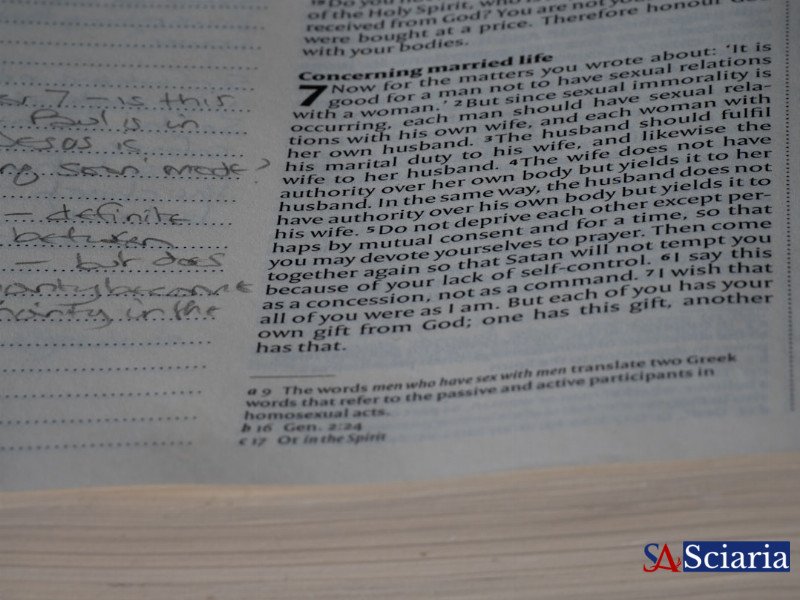 is this
Paul is in
Jesus is
made?
– definite
between
– but does
in the
19 Do you
of the Holy Spirit, who is
received from God? You are not you
were bought at a price. Therefore honour God
with your bodies.
Concerning married life
7 Now for the matters you wrote about: ‘It is
good for a man not to have sexual relations
with a woman.’ 2But since sexual immorality is
occurring, each man should have sexual rela-
tions with his own wife, and each woman with
her own husband. 3The husband should fulfil
his marital duty to his wife, and likewise the
wife to her husband. 4The wife does not have
authority over her own body but yields it to her
husband. In the same way, the husband does not
have authority over his own body but yields it to
his wife. 5Do not deprive each other except per-
haps by mutual consent and for a time, so that
you may devote yourselves to prayer. Then come
together again so that Satan will not tempt you
because of your lack of self-control. 6I say this
as a concession, not as a command. 7I wish that
all of you were as I am. But each of you has your
own gift from God; one has this gift, another
has that.
a 9 The words men who have sex with men translate two Greek
words that refer to the passive and active participants in
homosexual acts.
b 16 Gen. 2:24
c 17 Or in the Spirit
SA Sciaria